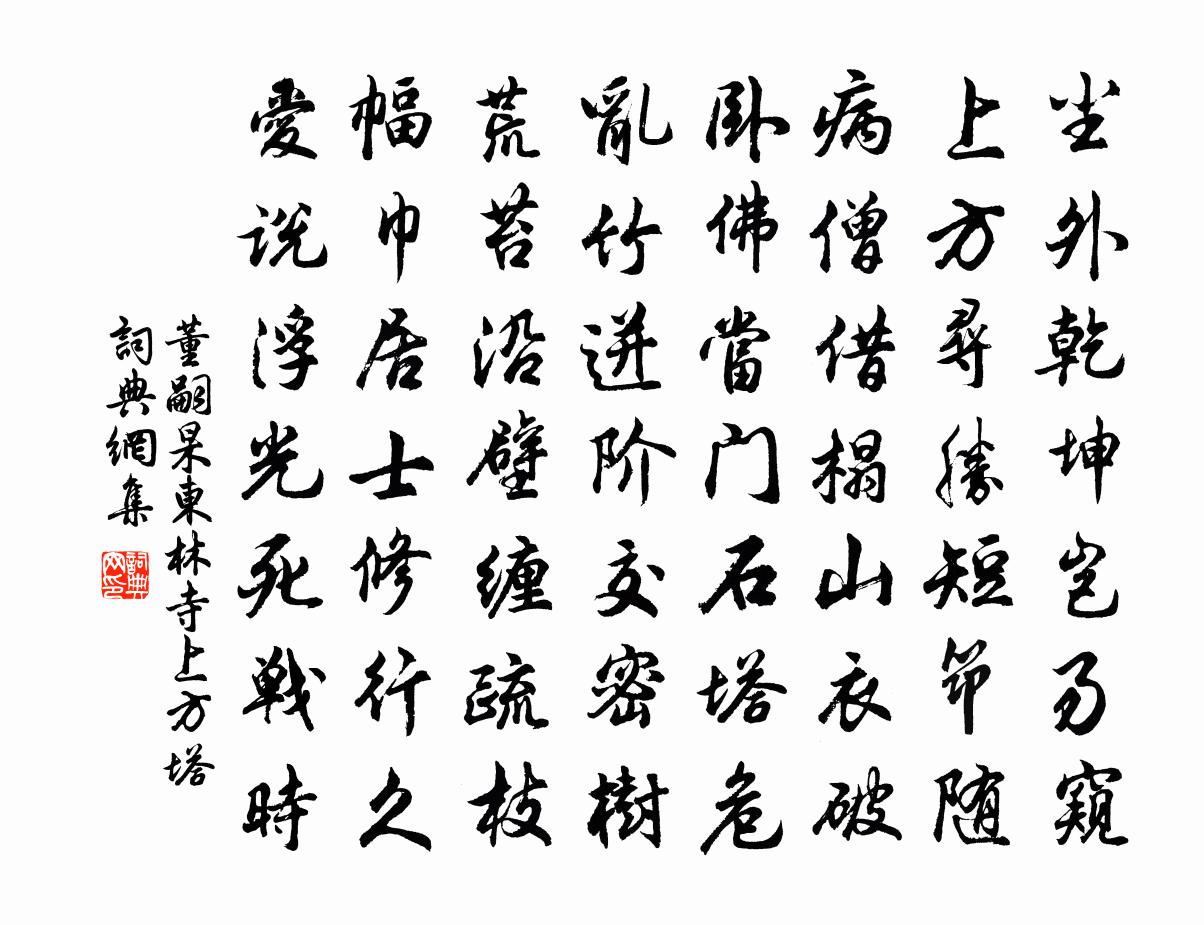 尘外乾坤岂易窺
上方尋勝短筇随
病僧借榻山衣破
卧佛當门石塔危
亂竹迸阶交密樹
荒苔沿壁缠疏枝
幅巾居士修行久
愛说浮光死戦時
董嗣杲東林寺上方塔
詞典網集
詞典网印